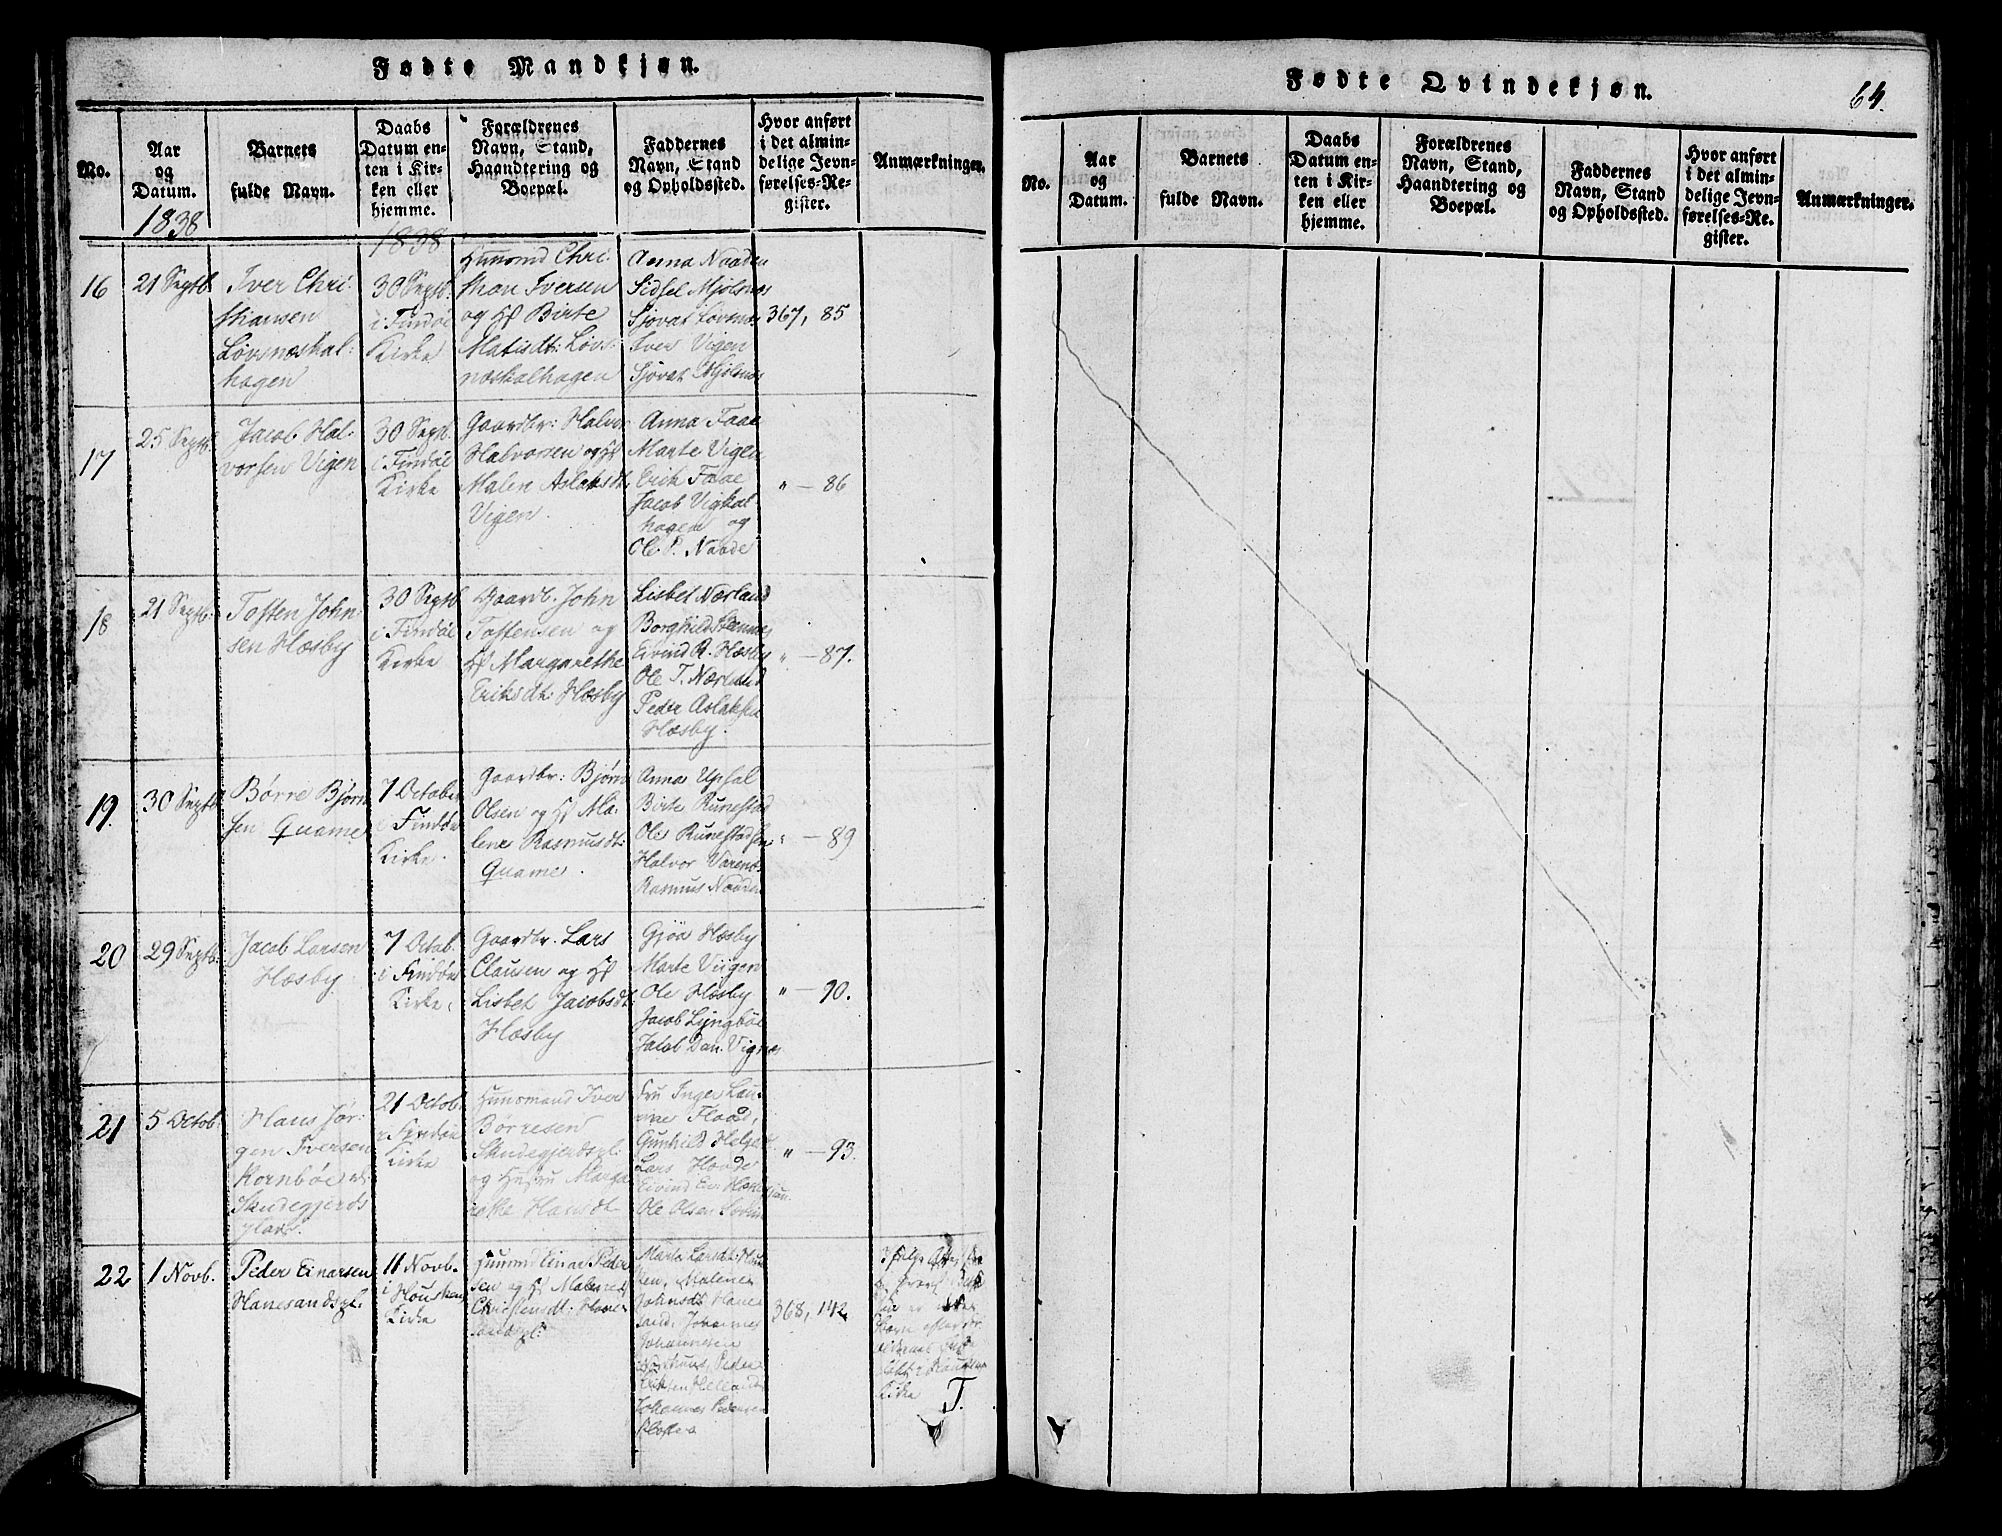 Fødte Mandkjøn.
No.
Aar
og
Datum.
1838
Barnets
fulde Navn.
Daabs
Datum en-
ten i Kir-
ken eller
hjemme.
1838
Forældrenes
Navn, Stand,
Haandtering og
Boepæl.
Faddernes
Navn, Stand
og Opholdssted.
Hvor anført
i det almin-
delige Jevn-
førelses-Re-
gister.
Anmærkninger.
16
21 Septb.
Iver Chri-
stiansen
Løvsnæskal-
hagen
30 Septb.
i Findöe
Kirke
Huusmd Chri-
stian Iversen
og Hf Birte
Matisdt: Løvs-
næskalhagen
Anna Naaden
Sidsel Mjølsnæs
Sjovat Løvsnæs
Iver Vigen
Sjovat Mjølsnæs
367, 85
17
25 Septb.
Jacob Hal-
vorsen Vigen
30 Septb.
i Findöe
Kirke
Gaardbr: Halvor
Halvorsen og Hf
Malen Aslaksdt:
Vigen.
Anna Faae
Marte Vigen
Erik Faae
Jacob Vigkal-
hagen og
Ole P. Naade
" — 86
18
21 Septb.
Tosten John-
sen Hæsby
30 Septb
i Findöe
Kirke
Gaardb. John
Tostensen og
Hf Margarethe
Eriksdt: Hæsby
Lisbet Nærland
Borghild
Eivind R. Hæsby
Ole T. Nærland
Peder Aslaksen
Hæsby.
" — 87.
19.
30 Septb
Børre Bjørn-
sen Qvame
7 October
i Findöe
Kirke.
Gaardbr: Bjørn
Olsen og Hf Ma-
lene Rasmusdt:
Qvame.
Anna Upsal
Birte Runestad
Ole Runestad
Halvor Varenes
Rasmus Naaden
" — 89
20
29 Septb.
Jacob Larsen
Hæsby
7 Octob.
i Findöe
Kirke.
Gaardbr. Lars
Clausen og Hf
Lisbet Jacobsdt:
Hæsby
Gjøa Hæsby
Marte Viigen
Ole Hæsby
Jacob Lyngböe
Jacob Dan. Vignes
" — 90.
21
5 Octob.
Hans Jør-
gen Iversen
Kornböe
Skudegjerds
plads.
21 Octob.
i Findöe
Kirke
Huusmand Iver
Børresen
Skudegjerdspl.
og Hustru Marga-
rethe Hansdt
Fru Inger
Flood,
Gunhild
Lars Hoade
Eivind
Ole Olsen
" — 93.
22
1 Novb.
Peder Einarsen
Hanesandspl.
11 Novb.
i Houskens
Kirke
Huusmd Einar Peder-
sen og Hf Malene
Christensdt: Hane-
sandspl:
Marta Larsdt:
Malene
Johnsdt: Hane-
sand, Johannes
Johannesen
Peder
Johannes Pedersen
368, 142
Kirke
T.
Fødte Qvindekjøn.
64.
No.
Aar
og
Datum.
Barnets
fulde Navn.
Daabs
Datum en-
ten i Kir-
ken eller
hjemme.
Forældrenes
Navn, Stand,
Haandtering og
Boepæl.
Faddernes
Navn, Stand
og Opholdssted.
Hvor anført
i det almin-
delige Jevn-
førelses-Re-
gister.
Anmærkninger.